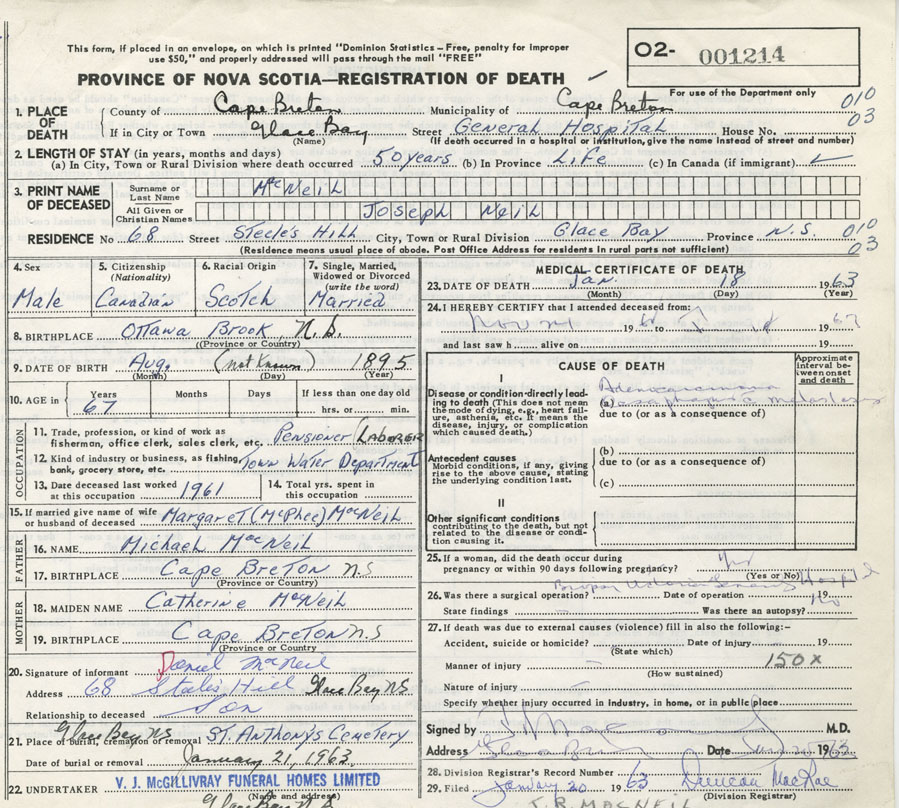 This form, if placed in an envelope, on which is printed "Dominion Statistics – Free, penalty for improper
use $50," and properly addressed will pass through the mail "FREE"
O2- 001214
PROVINCE OF NOVA SCOTIA—REGISTRATION OF DEATH
For use of the Department only
1. PLACE OF DEATH
County of Cape Breton Municipality of Cape Breton 010
If in City or Town Glace Bay Street General Hospital House No. 03
(Name) (If death occurred in a hospital or institution, give the name instead of street and number)
2. LENGTH OF STAY (in years, months and days)
(a) In City, Town or Rural Division where death occurred 50 years (b) In Province Life (c) In Canada (if immigrant)
3. PRINT NAME OF DECEASED
Surname or Last Name McNeil
All Given or Christian Names Joseph Neil
RESIDENCE No 68 Street Steele's Hill City, Town or Rural Division Glace Bay Province N.S. 010
(Residence means usual place of abode. Post Office Address for residents in rural parts not sufficient) 03
4. Sex Male
5. Citizenship (Nationality) Canadian
6. Racial Origin Scotch
7. Single, Married, Widowed or Divorced (write the word) Married
8. BIRTHPLACE Ottawa Brook, N.S.
(Province or Country)
9. DATE OF BIRTH Aug. (not known) 1895
(Month) (Day) (Year)
10. AGE in Years 67 Months Days If less than one day old
hrs. or min.
OCCUPATION
11. Trade, profession, or kind of work as
fisherman, office clerk, sales clerk, etc. Pensioner (Laborer
12. Kind of industry or business, as fishing,
bank, grocery store, etc. Town Water Department
13. Date deceased last worked
at this occupation 1961
14. Total yrs. spent in
this occupation
15. If married give name of wife
or husband of deceased Margaret (McPhee) MacNeil
FATHER
16. NAME Michael MacNeil
17. BIRTHPLACE Cape Breton N.S
(Province or Country)
MOTHER
18. MAIDEN NAME Catherine McNeil
19. BIRTHPLACE Cape Breton N.S
(Province or Country)
20. Signature of informant Daniel McNeil
Address 68 Hill Glace Bay NS
Relationship to deceased Son
21. Place of burial, cremation or removal Glace Bay NS St. Anthony's Cemetery
Date of burial or removal January 21, 1963
22. UNDERTAKER V. J. McGILLIVRAY FUNERAL HOMES LIMITED
(Name and address)
Glace Bay N S
MEDICAL CERTIFICATE OF DEATH
23. DATE OF DEATH Jan. 18 1963
(Month) (Day) (Year)
24. I HEREBY CERTIFY that I attended deceased from:
19 to 19
and last saw h alive on 19
CAUSE OF DEATH
Approximate interval between onset and death
I
Disease or condition directly leading to death (This does not mean the mode of dying, e.g., heart failure, asthenia, etc. It means the disease, injury, or complication which caused death.)
Adenocarcinoma
(a)
due to (or as a consequence of)
Antecedent causes
Morbid conditions, if any, giving rise to the above cause, stating the underlying condition last.
(b)
due to (or as a consequence of)
(c)
II
Other significant conditions
contributing to the death, but not related to the disease or condition causing it.
25. If a woman, did the death occur during
pregnancy or within 90 days following pregnancy?
(Yes or No)
26. Was there a surgical operation? Date of operation 19
State findings Was there an autopsy? No
27. If death was due to external causes (violence) fill in also the following:-
Accident, suicide or homicide? Date of injury 19
(State which)
Manner of injury 150X
(How sustained)
Nature of injury
Specify whether injury occurred in Industry, in home, or in public place
Signed by M.D.
Address Date 1963
28. Division Registrar's Record Number
29. Filed January 20 1963 Duncan MacRae
(Division Registrar)
J.R. MACNEIL